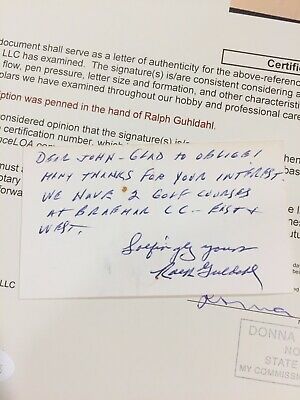 document shall serve as a letter of authenticity for the above-referen
Certifi
LLC has examined. The signature(s) is/are consistent considering a
flow, pen pressure, letter size and formation, and other characteristic
plars we have examined throughout our hobby and professional care
iption was penned in the hand of Ralph Guhldahl.
considered opinion that the signature(s) is/
certification number, which
nceLOA.com
must a
otary
forwa
LLC
DEAR JOHN - GLAD TO OBLIGE!
MANY THANKS FOR YOUR INTEREST.
WE HAVE 2 GOLF COURSES
AT BRAEMAR CC - EAST &
WEST.
Golfingly yours
Ralph Guldahl
DONNA
NO
STATE
MY COMMISS